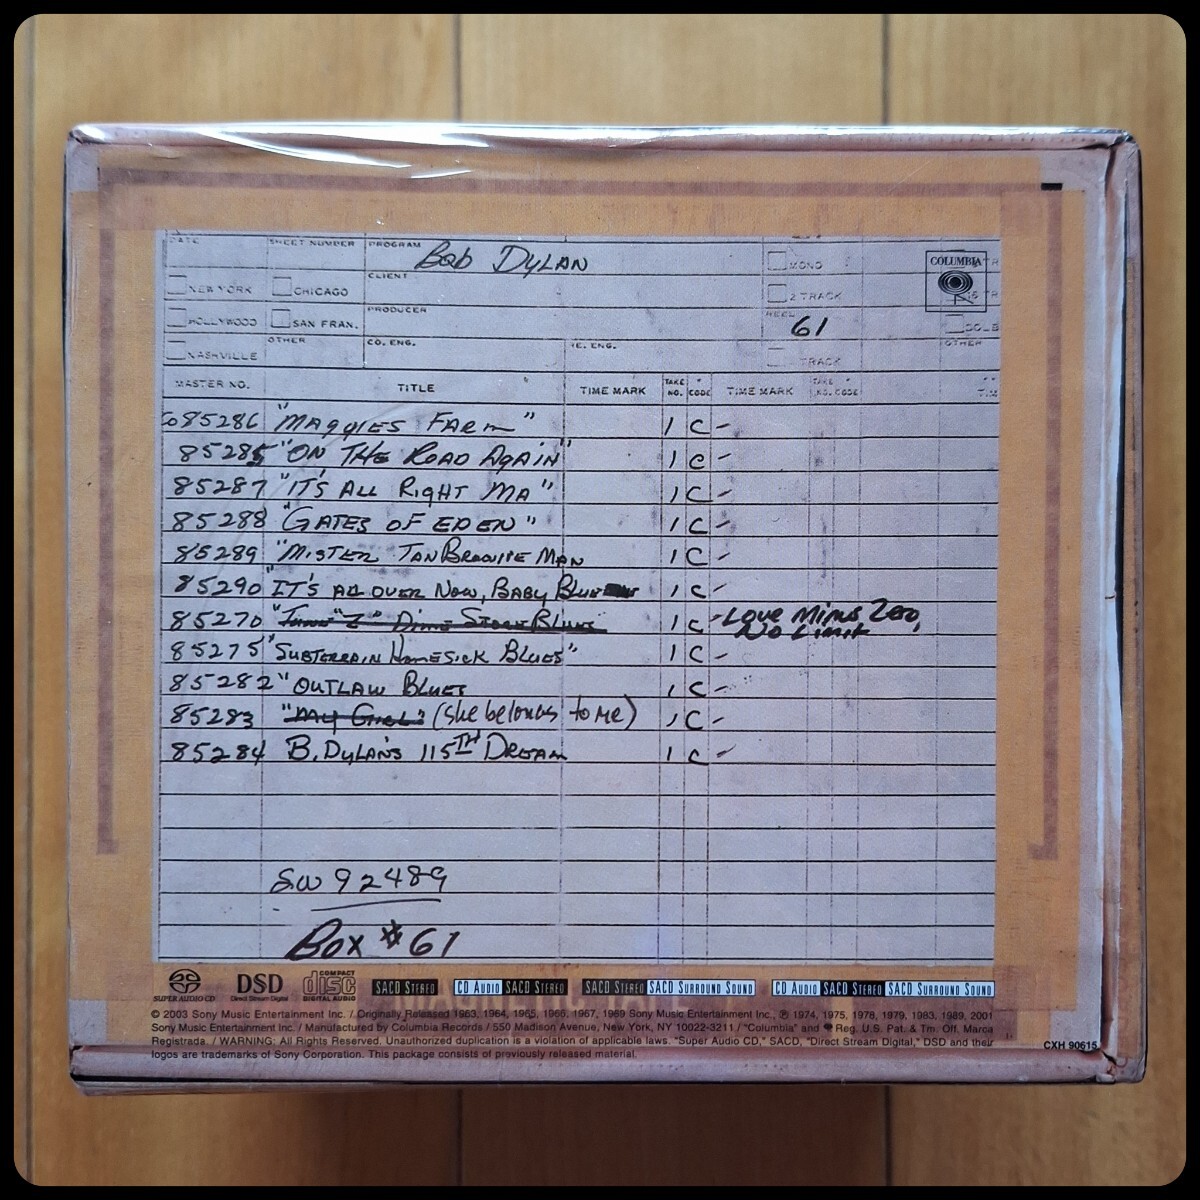 DATE SHEET NUMBER PROGRAM Bob Dylan MONO
COLUMBIA
NEW YORK CHICAGO CLIENT 2 TRACK
HOLLYWOOD SAN FRAN. PRODUCER REEL 61
NASHVILLE OTHER CO. ENG. TRACK OTHER
MASTER NO. TITLE TIME MARK TAKE NO. CODE TIME MARK TAKE NO. CODE
Co85286 "MAGGIES FARM" 1 C -
85285 "ON THE ROAD AGAIN" 1 C -
85287 "IT'S ALL RIGHT MA" 1 C -
85288 "GATES OF EDEN" 1 C -
85289 "MISTER TANBROUITE MAN 1 C -
85290 "IT'S ALL OVER NOW, BABY BLUE 1 C -
85270 1 C - Love Minus Zero,
No Limit
85275 "SUBTERRAIN HOMESICK BLUES" 1 C -
85282 "OUTLAW BLUES 1 C -
85283 "My Girl" (She belongs to me) 1 C -
85284 B. DYLAN'S 115TH DREAM 1 C -
SW 92489
Box #61
SUPER AUDIO CD DSD Direct Stream Digital COMPACT disc DIGITAL AUDIO SACD STEREO CD AUDIO SACD STEREO SACD STEREO SACD SURROUND SOUND CD AUDIO SACD STEREO SACD SURROUND SOUND
© 2003 Sony Music Entertainment Inc. / Originally Released 1963, 1964, 1965, 1966, 1967, 1969 Sony Music Entertainment Inc., ℗ 1974, 1975, 1978, 1979, 1983, 1989, 2001
Sony Music Entertainment Inc. / Manufactured by Columbia Records / 550 Madison Avenue, New York, NY 10022-3211 / "Columbia" and Reg. U.S. Pat. & Tm. Off. Marca
Registrada. / WARNING: All Rights Reserved. Unauthorized duplication is a violation of applicable laws. "Super Audio CD," SACD, "Direct Stream Digital," DSD and their
logos are trademarks of Sony Corporation. This package consists of previously released material.
CXH 90615